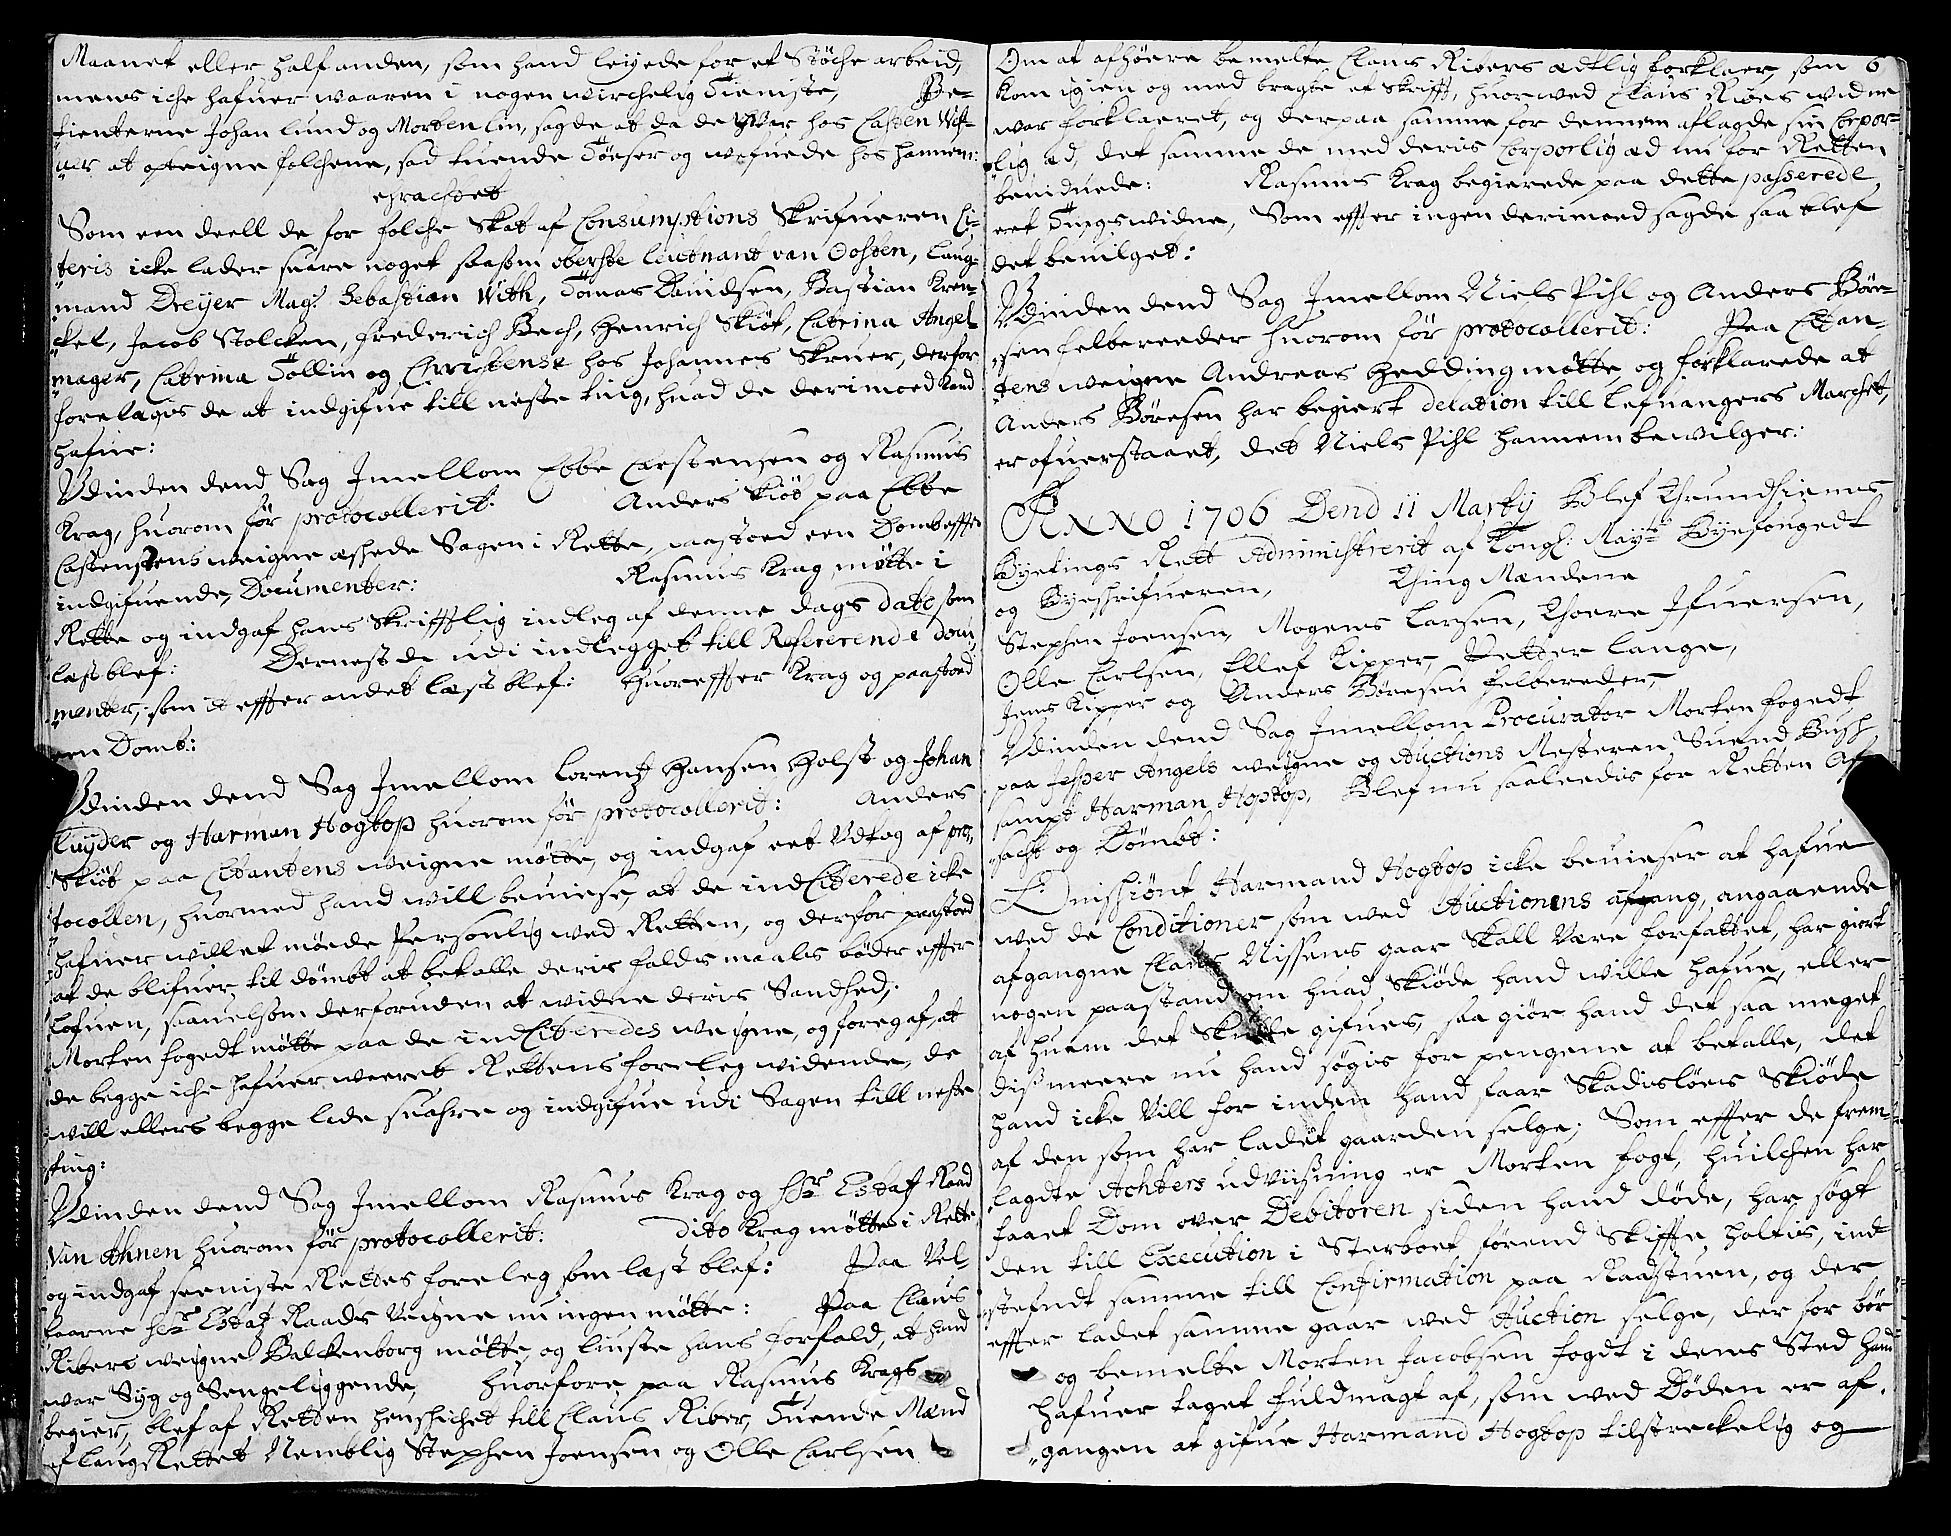 Maanet eller half anden, som hand leyede for et Støche arbeid,
mens iche hafuer waaren i nogen wirchelig Tieniste, Be-
tienterne Johan Lund og Morten Lin, sagde at da de war hos Casten Wist-
at opteigne folchene, sad tuende Tøeser og wefuede hos hannem:
Som een deell de for folche Skat af Consumptions Skrifueren Ci-
teris icke lader suare noget saasom oberste leutnant van Oosten, Laug-
mand Dreyer Mag: Sebastian With, Tomas Dauidsen, Bastian Kren-
ckel, Jacob Stolcken, Frederich Bech, Henrich Skiøt, Catrina Angel-
mager, Catrina Tøllin og Christense hos Johannes Skruer, derfor
forelagis de at indgifue till neste ting, huad de derimoed kand
hafue:
Udinden dend Sag Imellom Ebbe Carstensen og Rasmus
Krag, huorom før protocollerit. Anders Skiøt paa Ebbe
Castenstens weigne æshede Sagen i Rette, paastoed een Domb effter
indgifuende Documenter: Rasmus Krag møtte i
Rette og indgaf hans skrifftlig indleg af denne dags dato som
læst blef: Dernest de udi indlegget till Refererende docu-
menter, som it effter andet læst blef: Huoreffter Krag og paastoed
een Domb:
Udinden dend Sag Imellom Lorentz Hansen Holst og Johan
Luyder og Harman Hogtop huorom før protocollerit: Anders
Skiøt paa Citantens weigne møtte, og indgaf eet Udtog af pro-
tocollen, huormed hand will beuiese, at de ind Citerede icke
hafuer willet møede Personlig wed Retten, og derfor paastoed
at de blifuer til dømbt at betalle deris faldsmaals bøder effter
Lofuen, saauelsom derforuden at widne deris Sandhed;
Morten fogedt møtte paa de ind Citeredes weigne, og foregaf, at
de begge iche hafuer weeret Rettens foreleg widende, de
will ellers begge lade suahre og indgifue udi Sagen till neste
ting:
Udinden dend Sag Imellom Rasmus Krag og Hr Etatz Raad
Van Ahnen huorom før protocollerit: dito Krag møtte i Rette
og indgaf seeniste Rettes foreleg som læst blef: Paa Vel-
baarne Hr Etatz Raads Veigne nu ingen møtte: Paa Claus
Ribers weigne Balckenborg møtte, og liuste hans forfald, at hand
war Syg og Sengeliggende, Huorfore paa Rasmus Krags
begier, blef af Retten henskichet till Claus Riber, Tuende Mænd
af LaugRettet Nemblig Stephen Joensen og Olle Carlsen
Om at afhøere bemelte Claus Ribers ædtlig forklaer, som 6
kom igien og med bragte et Skrifft, huorwed Claus Ribes widne
war forklaeret, og derpaa samme for dennem aflagde sin Corpor-
lig æd, det samme de med deris Corporlig æd nu for Retten
beuidnede: Rasmus Krag begierede paa dette passerede
eet Tingswidne, Som effter ingen derimoed sagde saa blef
det beuilget:
Udinden dend Sag Imellom Niels Pihl og Anders Børe-
sen felbereeder huorom før protocollerit: Paa Citan-
tens weigne Andreas Hedding møtte, og forklarede at
Anders Børesen har begiert delation till Lefuangers Marchet,
er ofuerstaaet, det Niels Pihl hannem bewilger:
ANNO 1706 Dend 11 Marty Blef Thrundhiems
Byetings Rett Administrerit af Kongl: Mayts Byefougedt
og Byeskrifueren, Thing Mændene
Stephen Joensen, Mogens Larsen, Thoere Ifuersen,
Olle Carlsen, Ellef Kipper, Petter Lange,
Jens Kipper og Anders Børesen felbereder,
Udinden dend Sag Imellom Procurator Morten fogedt
paa Jesper Angels weigne og Auctions Mesteren Suend Bush
sampt Harman Hoptop, Blef nu saaleedis for Retten Af-
sacht og Dømbt:
Omskiønt Harmand Hogtop icke beuieser at hafue
wed de Conditioner som wed Auctionens afgang, angaaende
afgangne Claus Nissens gaar Skall være forfattet, har giort
nogen paastand om huad Skiøde hand wille hafue, eller
af huem det Skulle gifues, saa giør hand det saa meget
diß meere nu hand søgis for pengene at betalle, det
hand icke Vill for inden hand faar Skadisløes Skiøde
af den som har ladet gaarden selge; Som effter de frem-
lagdte Achters udviisning er Morten fogt, huilchen har
faaet Dom over Debitoren siden hand døde, har søgt
den till Execution i Sterboet førend Skiffte holtis, ind-
stefndt samme till Confirmation paa Raadstuen, og der
effter ladet samme gaar wed Auction selge, der for bør
og bemelte Morten Jacobsen fogdt i dens Sted hand
hafuer taget fuldmagt af, som wed Døden er af-
gangen at gifue Harmand Hogtop tilstreckelig og